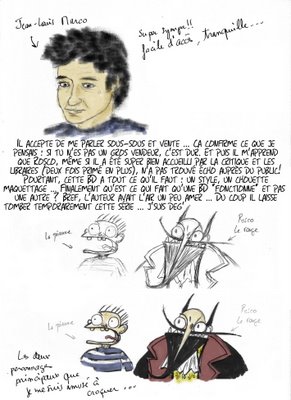 Jean-Louis Marco
Super Sympa!!
facile d'accès, tranquille...
IL ACCEPTE DE ME PARLER SOUS-SOUS ET VENTE ... ÇA CONFIRME CE QUE JE
PENSAIS : SI TU N'ES PAS UN GROS VENDEUR, C'EST DUR. ET PUIS IL M'APPREND
QUE ROSCO, MÊME SI IL A ÉTÉ SUPER BIEN ACCUEILLI PAR LA CRITIQUE ET LES
LIBRAIRES (DEUX FOIS PRIMÉ EN PLUS), N'A PAS TROUVÉ ÉCHO AUPRÈS DU PUBLIC!
POURTANT, CETTE BD A TOUT CE QU'IL FAUT : UN STYLE, UN CHOUETTE
MAQUETTAGE ... FINALEMENT QU'EST CE QUI FAIT QU'UNE BD "FONCTIONNE" ET PAS
UNE AUTRE ? BREF, L'AUTEUR AVAIT L'AIR UN PEU AMER ... DU COUP IL LAISSE
TOMBER TEMPORAIREMENT CETTE SÉRIE ... J'SUIS DEG'
Rosco
le rouge
Rosco
le rouge
Les deux
personnages
principaux que
je me suis amusé à
croquer ...